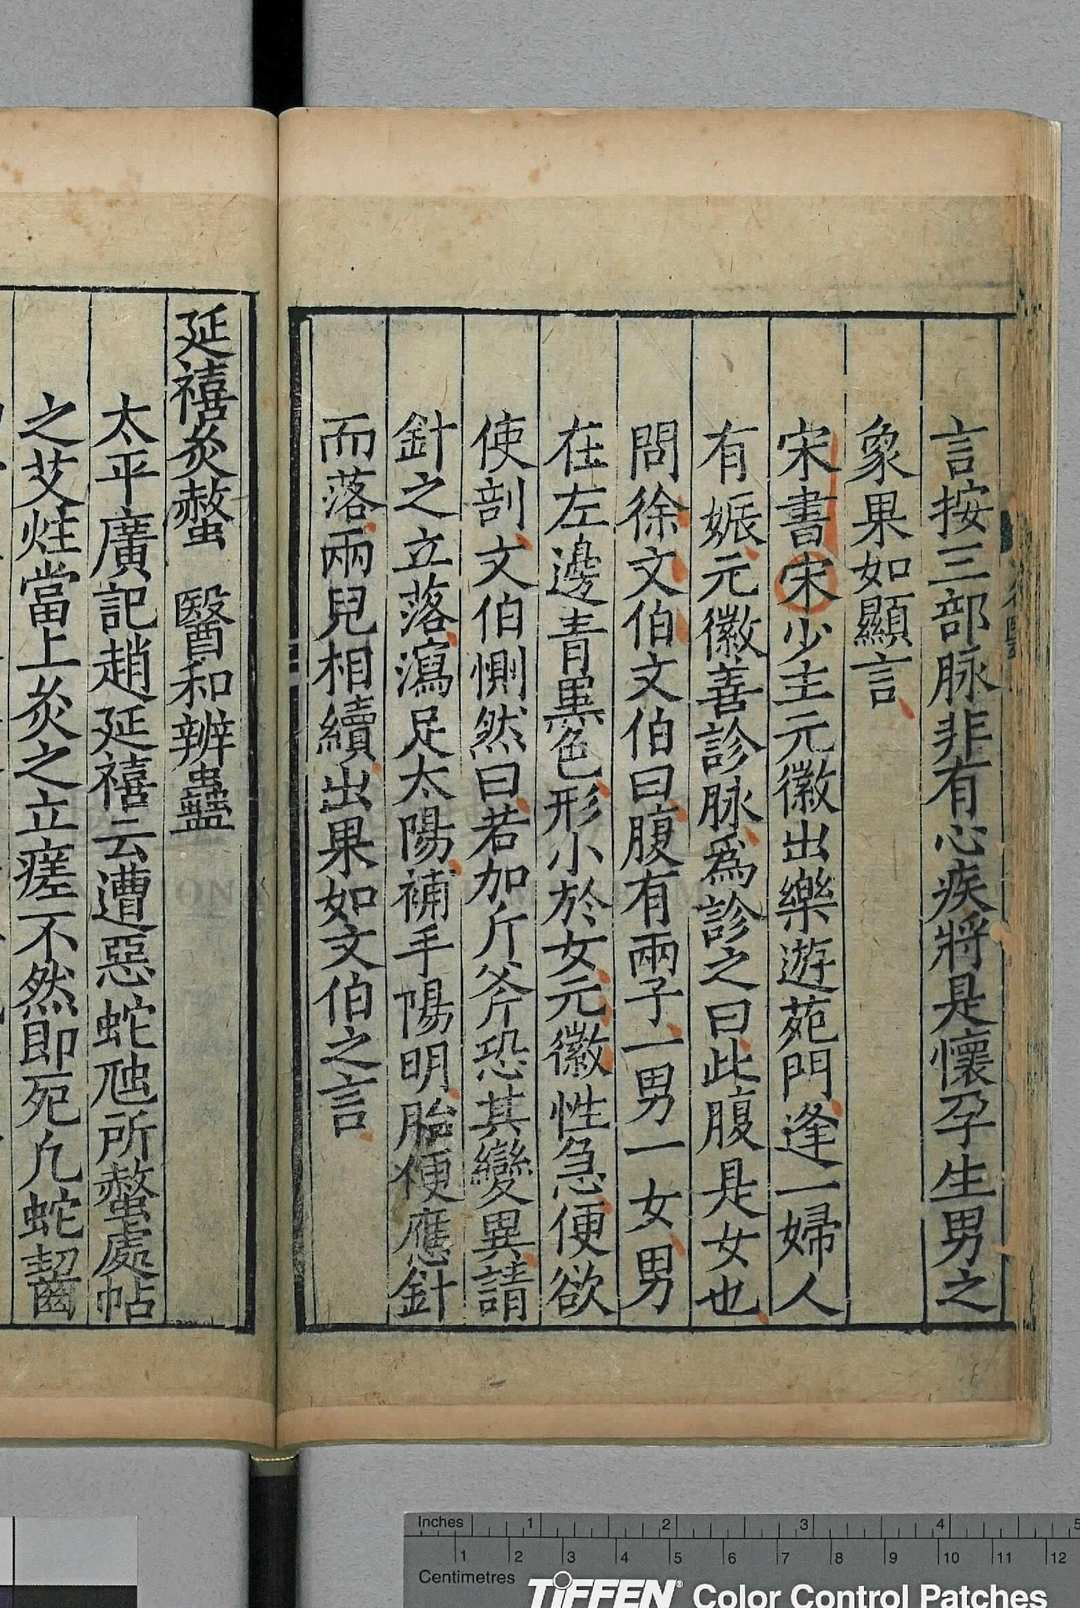 言按三部脉非有心疾將是懷孕生男之
象果如顯言
宋書宋少主元徽出樂遊苑門逢一婦人
有娠元徽善診脉爲診之曰此腹是女也
問徐文伯文伯曰腹有兩子一男一女男
在左邊青黑色形小於女元徽性急便欲
使剖文伯惻然曰若加斤斧恐其變異請
針之立落瀉足太陽補手陽明胎便應針
而落兩兒相續出果如文伯之言
延禧灸螫 醫和辨蠱
太平廣記趙延禧云遭惡蛇虺所螫處帖
之艾炷當上灸之立瘥不然即死凡蛇齧
Inches 1 2 3 4 5
1 2 3 4 5 6 7 8 9 10 11 12
Centimetres
TIFFEN® Color Control Patches